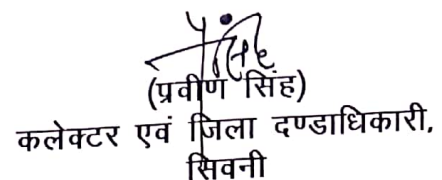 (प्रवीण सिंह)
कलेक्टर एवं जिला दण्डाधिकारी,
सिवनी